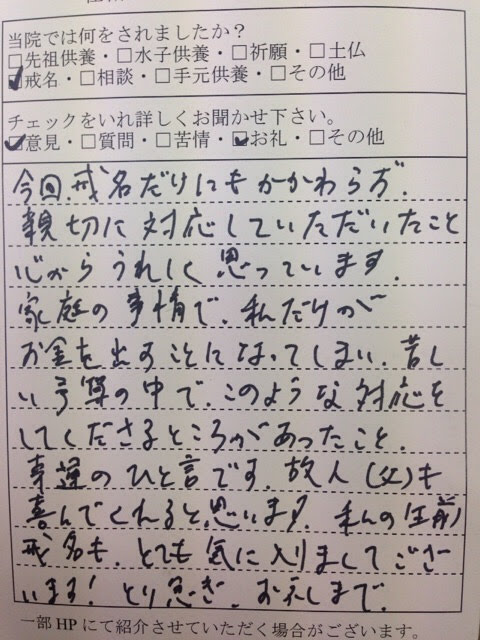 当院では何をされましたか？
□先祖供養・□水子供養・□祈願・□土仏
☑戒名・□相談・□手元供養・□その他
チェックをいれ詳しくお聞かせ下さい。
☑意見・□質問・□苦情・☑お礼・□その他
今回、戒名だけにもかかわらず、
親切に対応していただいたこと
心からうれしく思っています。
家庭の事情で、私だけが
お金を出すことになってしまい、苦し
い予算の中で、このような対応を
してくださるところがあったこと、
幸運のひと言です。故人（父）も
喜んでくれると思います。私の生前
戒名も、とても気に入りましてござ
います！とり急ぎ、お礼まで。
一部HPにて紹介させていただく場合がございます。